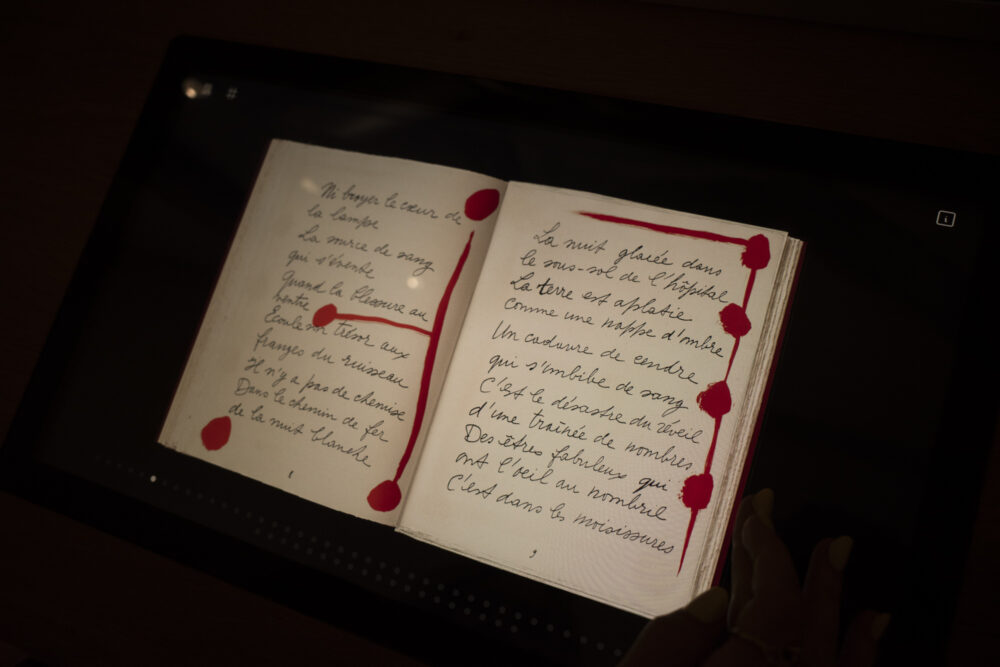 Ni broyer le cœur de
la lampe
La source de sang
qui s'évente
Quand la blessure au
ventre
Écoule son trésor aux
franges du ruisseau
Il n'y a pas de chemise
Dans le chemin de fer
de la nuit blanche
8
La nuit glacée dans
le sous-sol de l'hôpital
La terre est aplatie
comme une nappe d'ombre
Un cadavre de cendre
qui s'imbibe de sang
C'est le désastre du réveil
d'une traînée de nombres
Des êtres fabuleux qui
ont l'œil au nombril
C'est dans les moisissures
9